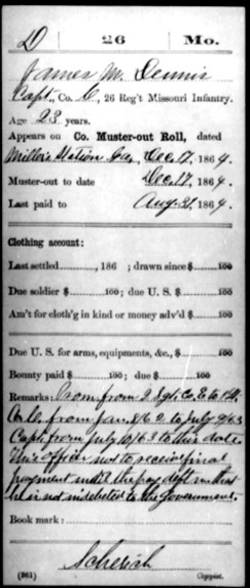 D 26 Mo.
James M. Dennis
Capt., Co. C, 26 Reg't Missouri Infantry.
Age 23 years.
Appears on Co. Muster-out Roll, dated
Miller's Station Ga, Dec. 17, 1864.
Muster-out to date Dec. 17, 1864.
Last paid to Aug. 31, 1864.
Clothing account:
Last settled , 186 ; drawn since $ 100
Due soldier $ 100; due U. S. $ 100
Am't for cloth'g in kind or money adv'd $ 100
Due U. S. for arms, equipments, &c., $ 100
Bounty paid $ 100; due $ 100
Remarks: Prom. from 2 Sgt. Co. E to
Co. C. from Jan. 8/62 to July 9/63
Capt. from July 10/63 to this date.
This officer not to receive final
payment until the pay dept. is satisfied
he is not indebted to the Government.
Book mark:
(361) Copyist.